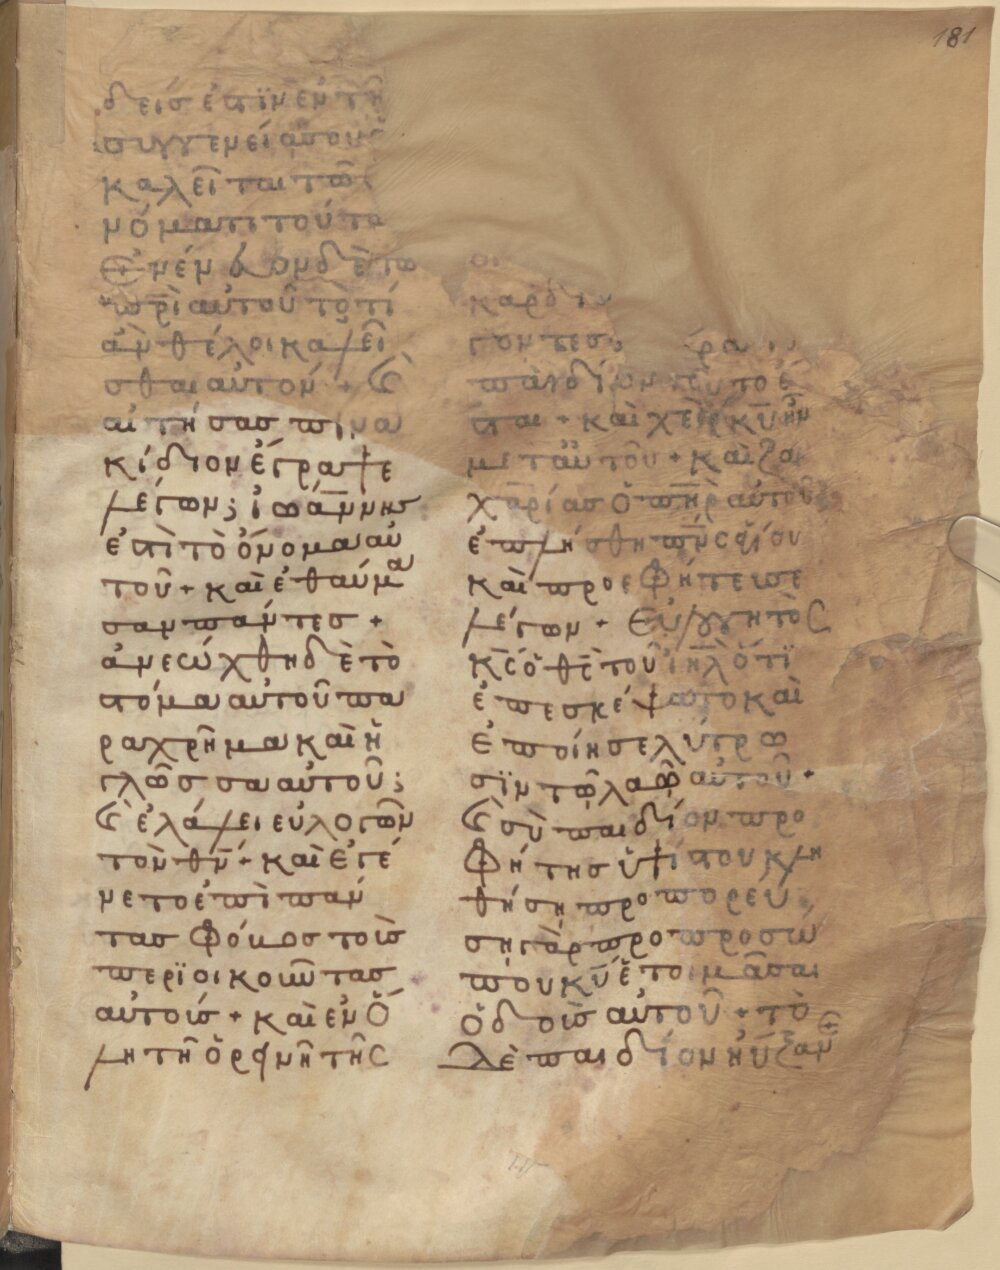 181
δείσ ἐστὶν ἐν τῆ
συγγενεία σου
καλεῖται τῶ
νόματι τούτω
νέν ον δὲ τῶ
πρὶ αὐτοῦ τὸ τί
ἀν θέλοι καλεῖ
σθαι αὐτόν +
αἰτήσασ πινα
κίδιον ἔγραψε
λέγων; ἰωάννησ
ἐστὶ τὸ ὄνομα αὐ
τοῦ + καὶ ἐθαύμα
σαν πάντεσ +
ἀνεώχθη δὲ τὸ
στόμα αὐτοῦ πα
ραχρῆμα καὶ ἡ
γλῶσσα αὐτοῦ;
ἐλάλει εὐλογῶν
τὸν θν + καὶ ἐγέ
νετο ἐπὶ πάν
τασ φόβοσ τοὺσ
περϊοικοῦντασ
αὐτοὺσ + καὶ ἐν ὅ
λη τῆ ὀρεινῆ τῆς
καρδι
γοντεσ ρα
παιδίον τοῦτο ἔ
σται + καὶ χεὶρ κυ ἦν
μετ αὐτοῦ + καὶ ζα
χαρίασ ὁ πηρ αὐτοῦ
ἐπλήσθη πνς ἁγίου
καὶ προεφήτευσε
λέγων + Εὐλογητὸς
κς ὁ θς τοῦ ιηλ ὅτϊ
ἐπεσκέψατο καὶ
ἐποίησε λύτρω
σϊν τῶ λαῶ αὐτοῦ +
σὺ παιδίον προ
φήτησ ὑψίστου κλη
θήση προπορεύ
ση γὰρ πρὸ προσώ
που κυ ἑτοιμᾶσαι
ὁδοὺσ αὐτοῦ + τὸ
δὲ παιδίον ηὔξαν